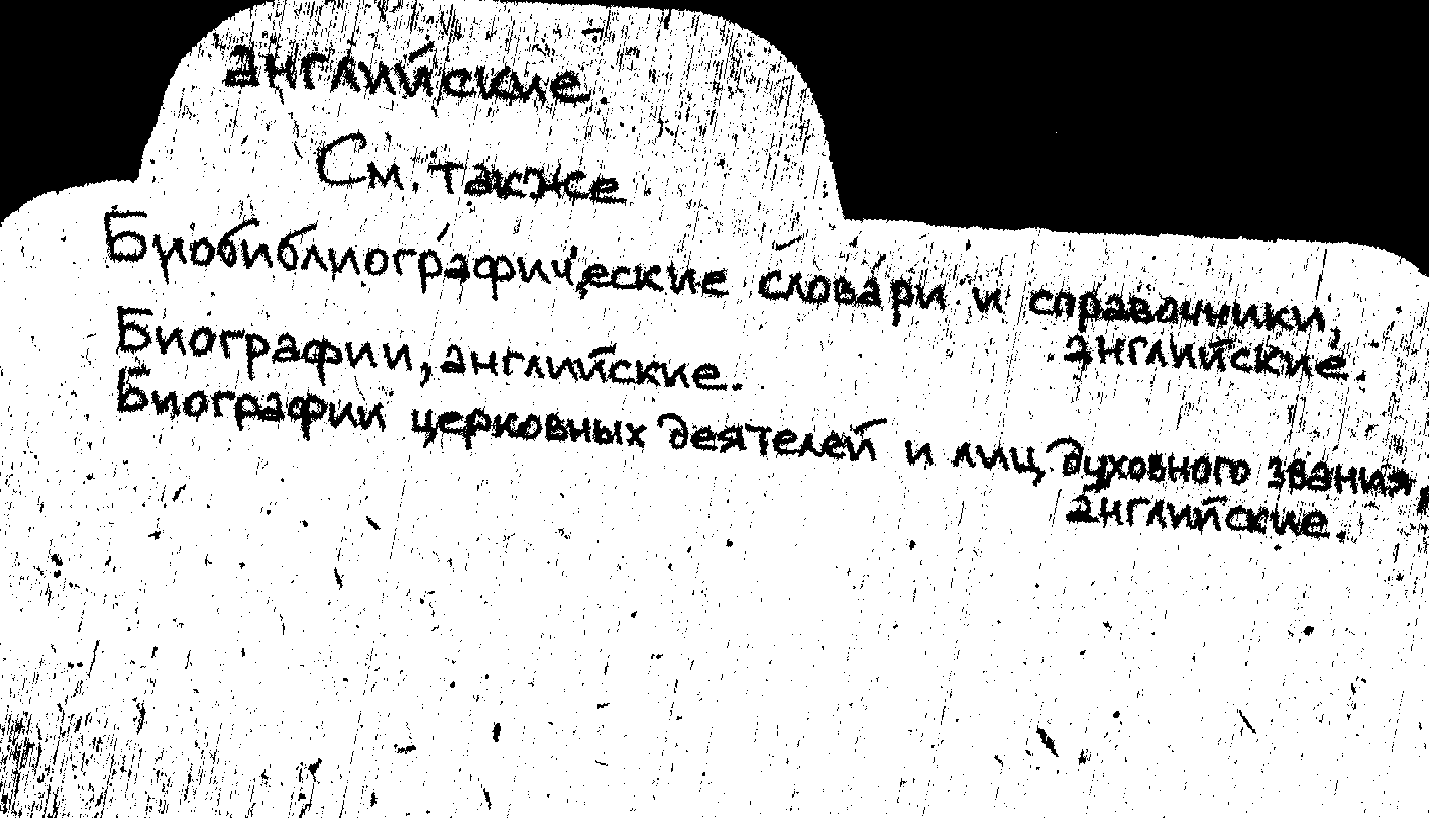 английские.
См. также.
Биобиблиографические словари и справочники,
английские.
Биографии, английские.
Биографии церковных деятелей и лиц духовного звания,
английские.